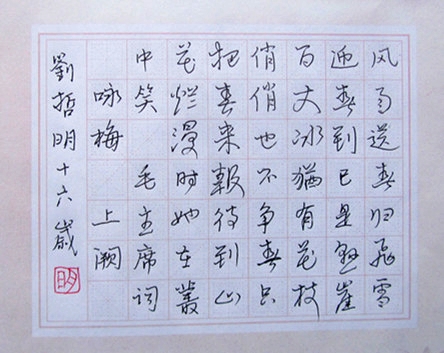 风雨送春归飞雪
迎春到已是悬崖
百丈冰猶有花枝
俏俏也不争春只
把春来報待到山
花烂漫时她在叢
中笑 毛主席词
咏梅 上阙
劉哲明十六歲
明